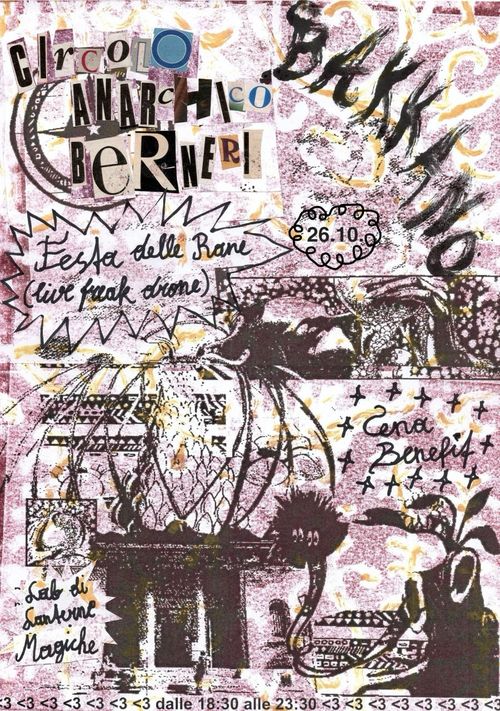 CIRCOLO
ANARCHICO
BERNERI
BAKKANO
26.10
Festa delle Rane
(live freak drone)
Cena
Benefit
Lab di
Lanterne
Magiche
<3 <3 <3 <3 <3 <3 dalle 18:30 alle 23:30 <3 <3 <3 <3 <3 <3 <3